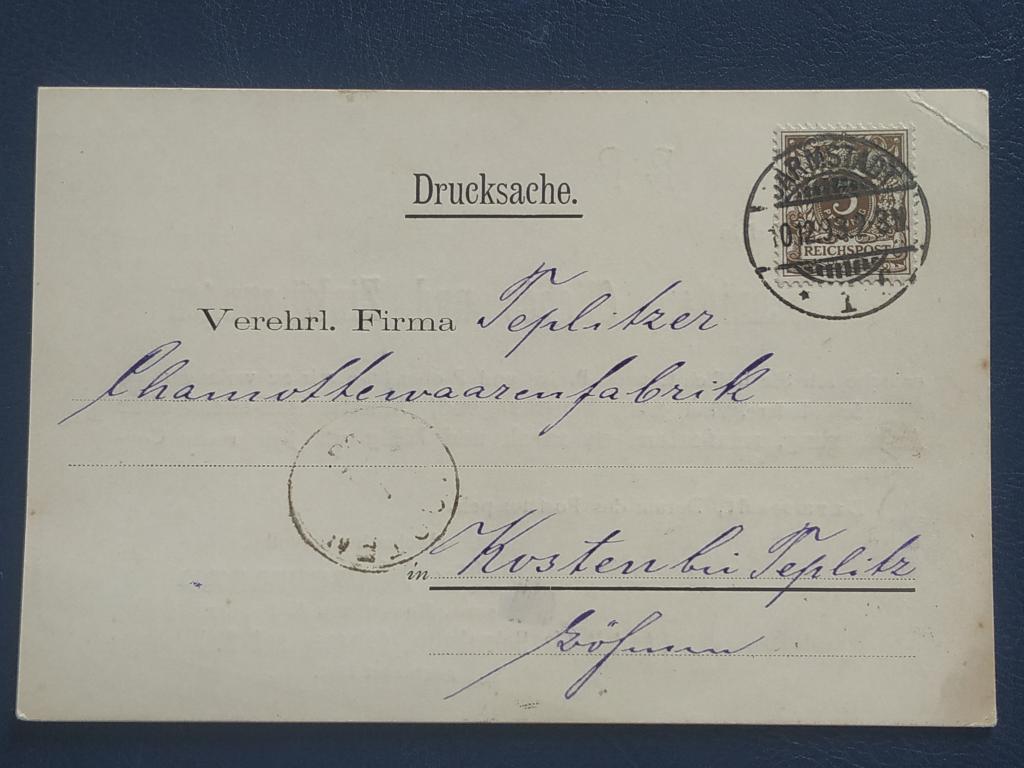 Drucksache.
DARMSTADT
3
REICHSPOST
* 1
Verehrl. Firma Teplitzer
Chamottewaarenfabrik
in Kosten bei Teplitz
Böhmen